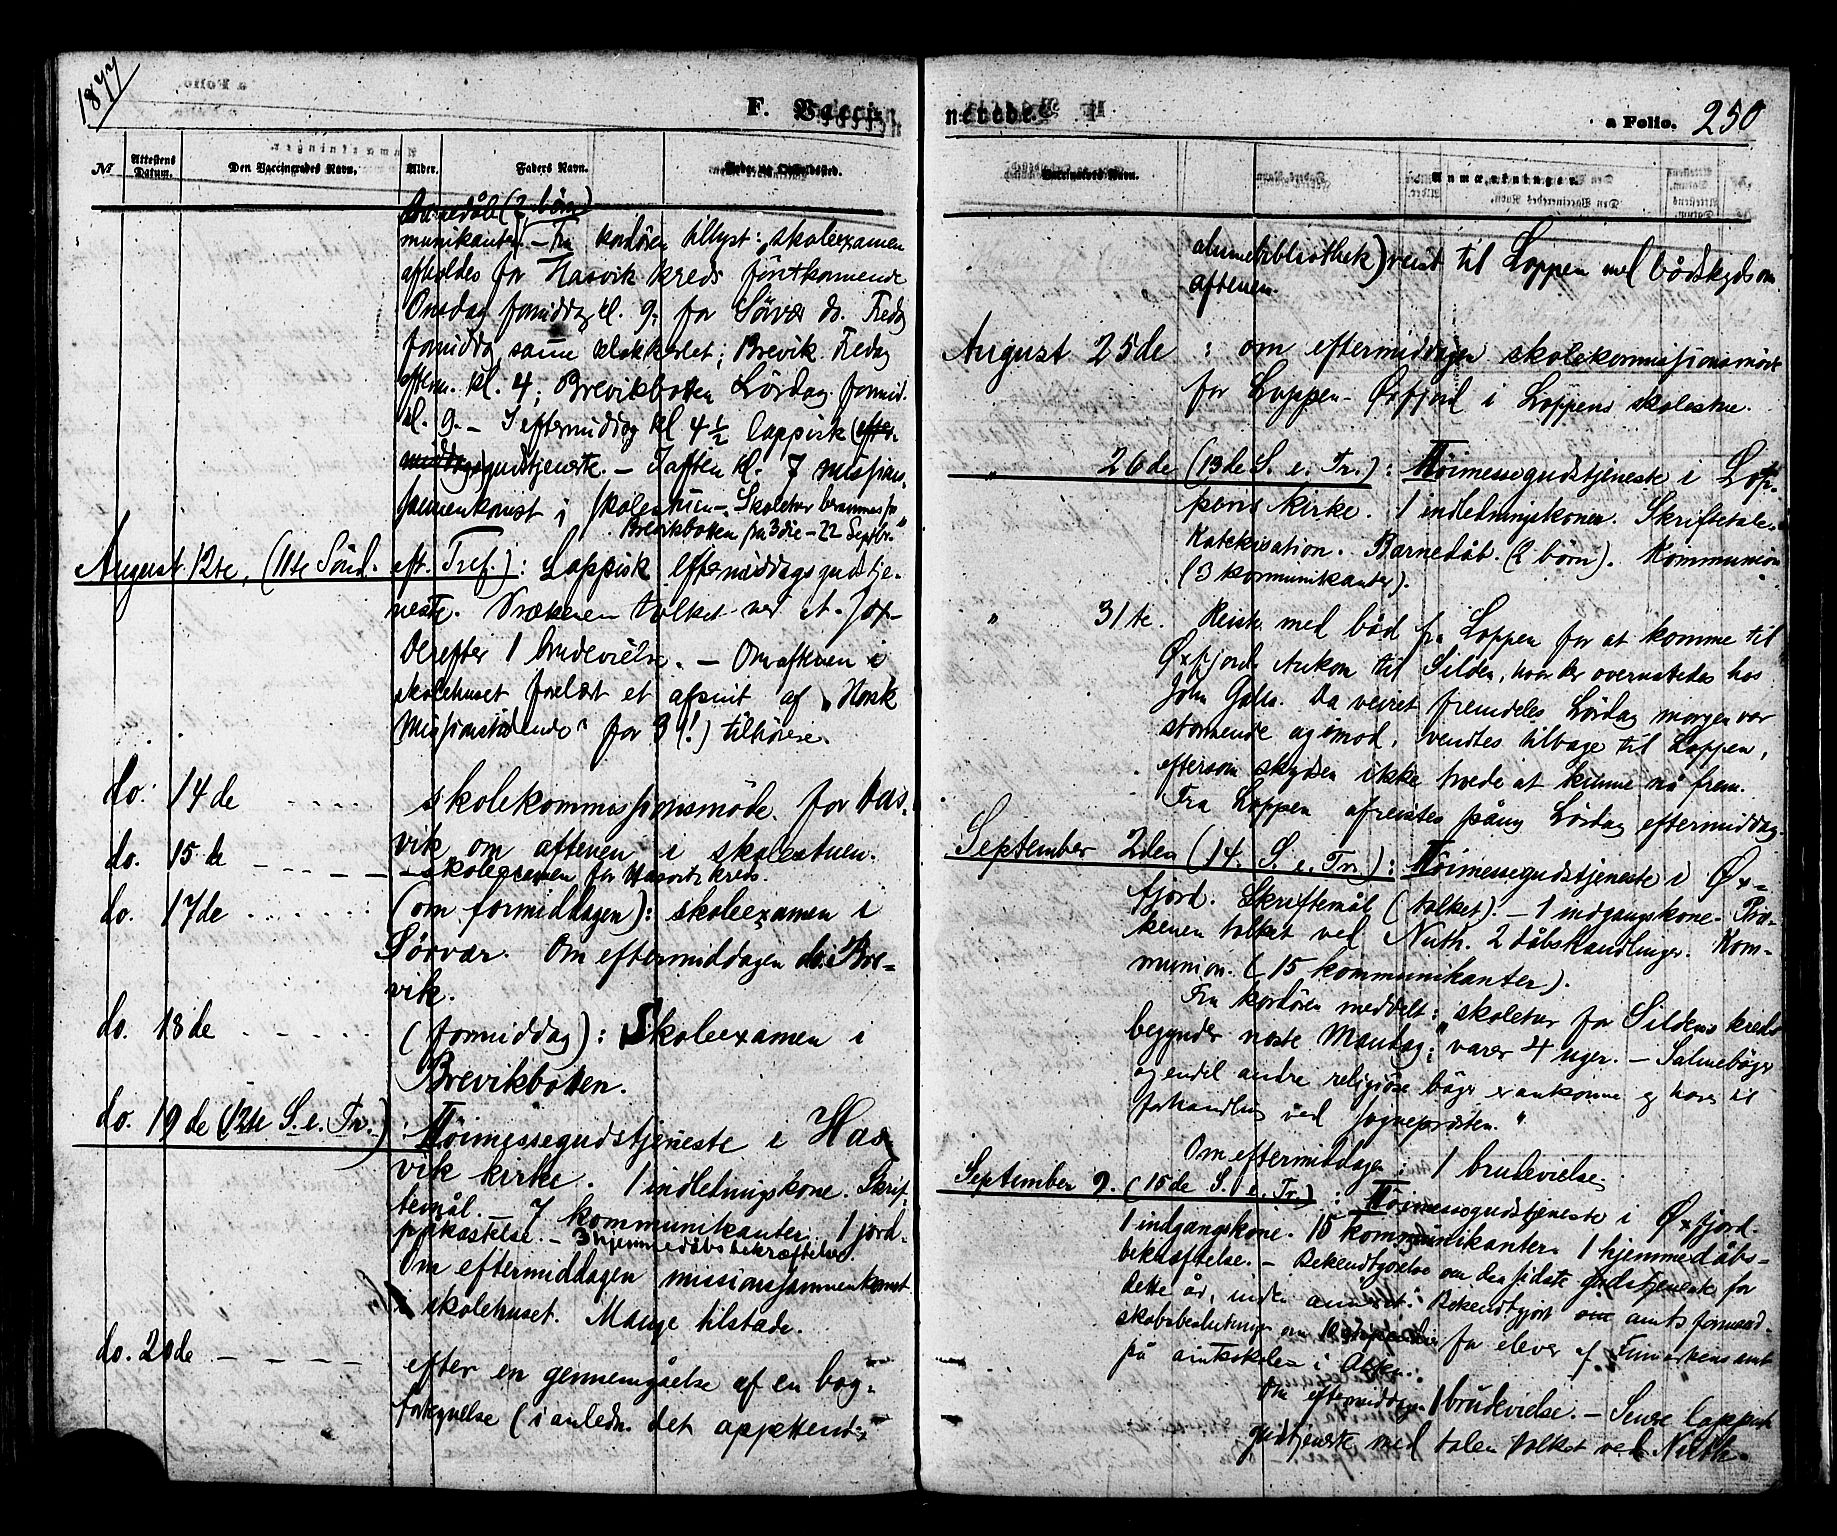 1877
F. Vaccin
№
Attestens Datum.
Den Vaccineredes Navn.
Alder.
Faders Navn.
Barnedåb (2 börn)
munikanter. – Fra kordören tillyst: „skoleexamen
afholdes for Hasvik kreds förstkommende
Onsdag formiddag kl. 9; for Sörvær do. Fredag
formiddag samme klokkeslet; Brevik Fredag
efterm. kl. 4; Brevikbotten Lördag formid.
kl. 9. – I eftermiddag kl 4½ lappisk (efter-
middags)gudstjeneste. – I aften kl. 7 missjons-
sammenkomst i skolestuen –. Skoletur berammes for
Brevikbotten fra 3die – 22 Septbr."
August 12te, (11te Sönd. eft. Tref.): Lappisk eftermiddagsgudstje-
neste. Prækenen tolket ved
Derefter 1 brudevielse. – Om aftenen i
skolehuset forelæst et afsnit af „Norsk
Missionstidende" for 3 (!) tilhörere.
do. 14de - - - - skolekommissjonsmöde for Has-
vik om aftenen i skolestuen.
do. 15de - - - - - skoleexamen for Hasviks kreds.
do. 17de - - - - - - (om formiddagen): skoleexamen i
Sörvær. Om eftermiddagen do. i Bre-
vik.
do. 18de - - - - - (formiddag): Skoleexamen i
Brevikbotten.
do. 19de (12te S. e. Tr.): Höimessegudstjeneste i Has-
vik kirke. 1 indledningskone. Skrif-
temål. – 7 kommunikanter. 1 jord-
påkastelse. – 3 hjemmedåbsbekræftelser.
Om eftermiddagen missionssammenkomst
i skolehuset. Mange tilstede.
do. 20de - - - - efter en gennemgåelse af en bog-
fortegnelse (i anledn. det oprettende
nerede.
a Folio. 250
Anmærkninger.
almuebibliothek) reist til Loppen med bådskyds om
aftenen.
August 25de : om eftermiddagen skolekommissjonsmöde
for Loppen - Øxfjord i Loppens skolestue.
„ 26de (13de S. e. Tr.): Höimessegudstjeneste i Lop-
pens kirke. 1 indledningskone. Skriftetale.
Katekisation. Barnedåb. (2 börn). Kommunion
(3 kommunikanter).
„ 31te. Reiste med båd fra Loppen for at komme til
Øxfjord. Ankom til Silden, hvor der overnattedes hos
John Galts. Da veiret fremdeles Lördag morgen var
stormende og imod, vendtes tilbage til Loppen,
eftersom skydsen ikke troede at kunne nå frem.
Fra Loppen afreistes påny Lördag eftermiddag.
September 2den (14. S. e. Tr.): Höimessegudstjeneste i Øx-
fjord. Skriftemål (tolket). – 1 indgangskone. Præ-
kenen tolket ved Nuth. 2 dåbshandlinger. Kom-
munion. (15 kommunikanter).
Fra kordören meddelt: „skoletur for Sildens kreds
begynder næste Mandag; varer 4 uger. – Salmebøger
og endel andre religiøse bøger er ankomne og haves til
forhandling ved sognepræsten."
Om eftermiddagen: 1 brudevielse.
September 9. (15de S. e. Tr.): Höimessegudstjeneste i Øxfjord.
1 indgangskone. 15 kommunikanter. 1 hjemmedåbs-
bekræftelse. – Bekendtgørelse om den sidste gudstjeneste for
dette år, inden Bekendtgjort om amtsformand-
skabsbeslutning om for elever af Finmarkens amt
på amtsskolen i
Om eftermiddagen 1 brudevielse. – Senere lappisk
gudstjeneste med talen tolket ved Nuth.